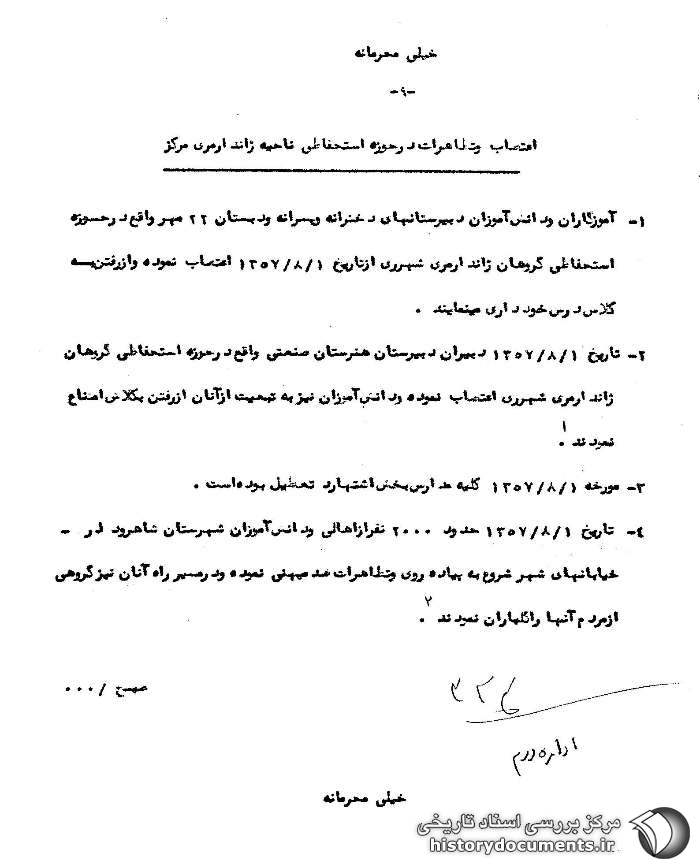 خیلی محرمانه
-۹-
اعتصاب وتظاهرات درحوزه استحفاظی ناحیه ژاندارمری مرکز
۱- آموزگاران ودانش‌آموزان دبیرستانهای دخترانه وپسرانه ودبستان ۲۲ مهر واقع درحسوزه
استحفاظی گروهان ژاندارمری شهرری ازتاریخ ۱۳۵۷/۸/۱ اعتصاب نموده وازرفتن‌بسه
کلاس درس خودداری مینمایند .
۲- تاریخ ۱۳۵۷/۸/۱ دبیران دبیرستان هنرستان صنعتی واقع درحوزه استحفاظی گروهان
ژاندارمری شهرری اعتصاب نموده ودانش‌آموزان نیز به تبعیت ازآنان ازرفتن بکلاس امتناع
نمودند ۱.
۳- مورخه ۱۳۵۷/۸/۱ کلیه مدارس‌بخش‌اشتهارد تعطیل بوده‌است .
۴- تاریخ ۱۳۵۷/۸/۱ حدود ۲۰۰۰ نفرازاهالی ودانش‌آموزان شهرستان شاهرود در -
خیابانهای شهر شروع به پیاده روی وتظاهرات ضدمیهنی نموده ودرمسیر راه آنان نیزگروهی
ازمردم آنها راگلباران نمودند ۲.
صبح /۰۰۰
۳۲۴
اداره دوم
خیلی محرمانه
مرکز بررسی اسناد تاریخی
historydocuments.ir